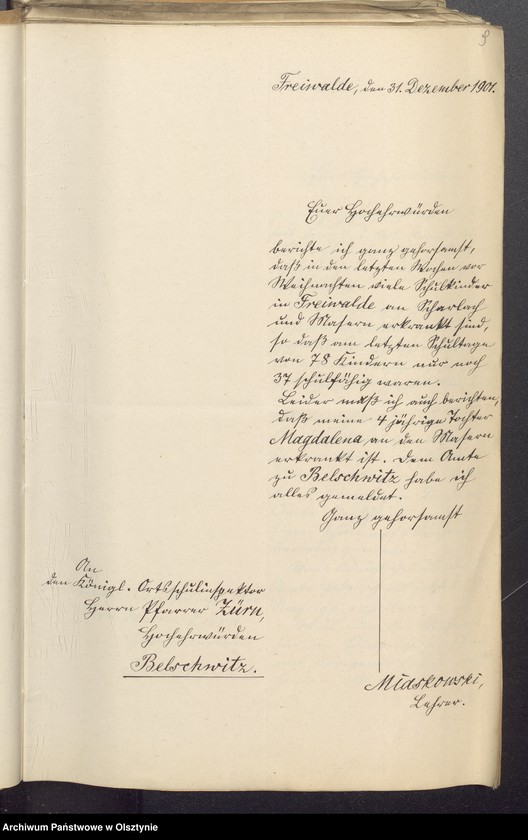 9
Freiwalde, den 31. Dezember 1901.
Euer Hochehrwürden
berichte ich ganz gehorsamst,
daß in den letzten Wochen vor
Weihnachten viele Schulkinder
in Freiwalde an Scharlach
und Masern erkrankt sind,
so daß am letzten Schultage
von 78 Kindern nur noch
37 schulfähig waren.
Leider muß ich auch berichten,
daß meine 4 jährige Tochter
Magdalena an den Masern
erkrankt ist. Dem Amte
zu Belschwitz habe ich
alles gemeldet.
Ganz gehorsamst
An
den Königl. Ortsschulinspektor
Herrn Pfarrer Zürn,
Hochehrwürden
Belschwitz.
Midskowski,
Lehrer.
Archiwum Państwowe w Olsztynie